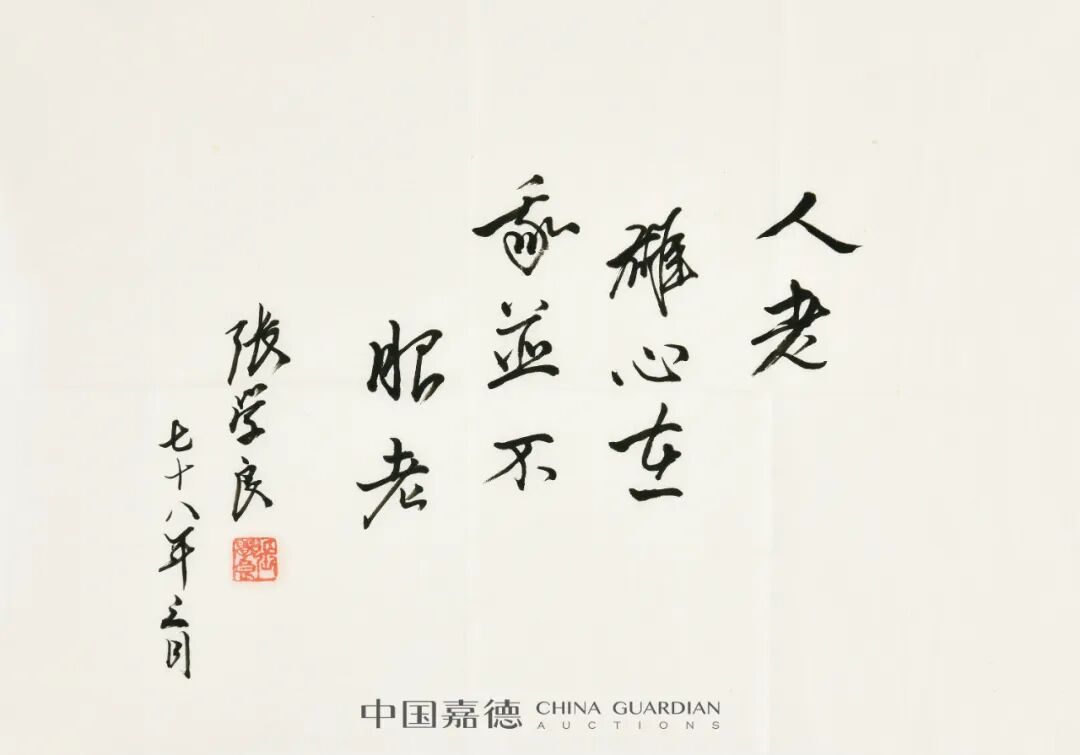 人老
雄心在
我並不
服老
張学良
張學良
七十八年三月
中国嘉德 CHINA GUARDIAN
AUCTIONS